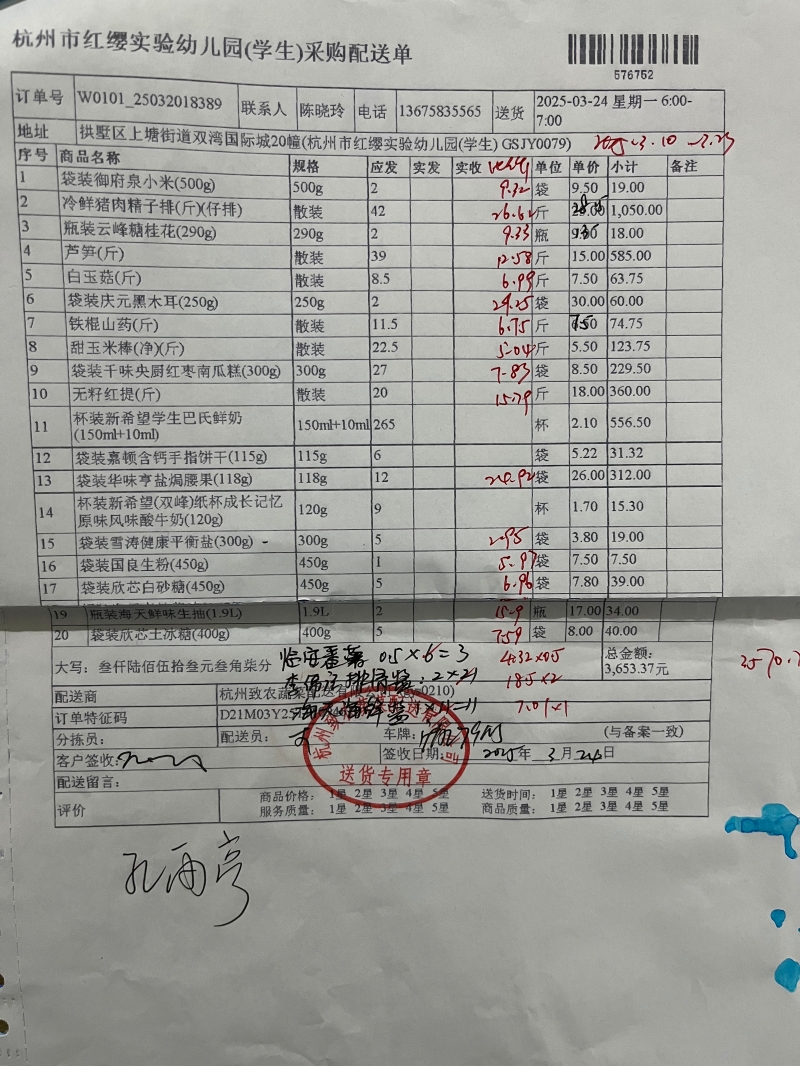 杭州市红缨实验幼儿园(学生)采购配送单
576752
订单号 W0101_25032018389 联系人 陈晓玲 电话 13675835565 送货 2025-03-24 星期一 6:00-7:00
地址 拱墅区上塘街道双湾国际城20幢(杭州市红缨实验幼儿园(学生) GSJY0079)
序号 商品名称 规格 应发 实发 实收 单位 单价 小计 备注
1 袋装御府泉小米(500g) 500g 2 9.32 袋 9.50 19.00
2 冷鲜猪肉精子排(斤)(仔排) 散装 42 26.62 斤 1,050.00
3 瓶装云峰糖桂花(290g) 290g 2 9.33 瓶 18.00
4 芦笋(斤) 散装 39 12.58 斤 15.00 585.00
5 白玉菇(斤) 散装 8.5 6.99 斤 7.50 63.75
6 袋装庆元黑木耳(250g) 250g 2 29.25 袋 30.00 60.00
7 铁棍山药(斤) 散装 11.5 6.75 斤 74.75
8 甜玉米棒(净)(斤) 散装 22.5 5.04 斤 5.50 123.75
9 袋装千味央厨红枣南瓜糕(300g) 300g 27 7.83 袋 8.50 229.50
10 无籽红提(斤) 散装 20 15.79 斤 18.00 360.00
11 杯装新希望学生巴氏鲜奶(150ml+10ml) 150ml+10ml 265 杯 2.10 556.50
12 袋装嘉顿含钙手指饼干(115g) 115g 6 袋 5.22 31.32
13 袋装华味亨盐焗腰果(118g) 118g 12 袋 26.00 312.00
14 杯装新希望(双峰)纸杯成长记忆原味风味酸牛奶(120g) 120g 9 杯 1.70 15.30
15 袋装雪涛健康平衡盐(300g) 300g 5 2.95 袋 3.80 19.00
16 袋装国良生粉(450g) 450g 1 5.97 袋 7.50 7.50
17 袋装欣芯白砂糖(450g) 450g 5 6.96 袋 7.80 39.00
19 瓶装海天鲜味生抽(1.9L) 1.9L 2 15.9 瓶 17.00 34.00
20 袋装欣芯土冰糖(400g) 400g 5 7.59 袋 8.00 40.00
大写: 叁仟陆佰伍拾叁元叁角柒分 总金额: 3,653.37元
临安番薯 0.5×6=3 4.32×0.5
18.5×2
7.01×1
配送商 杭州致农蔬菜配送有限
订单特征码
分拣员: 配送员: 车牌: (与备案一致)
客户签收: 签收日期: 2025年 3月24日
送货专用章
配送留言:
评价 商品价格: 1星 2星 3星 4星 5星 送货时间: 1星 2星 3星 4星 5星
服务质量: 1星 2星 3星 4星 5星 商品质量: 1星 2星 3星 4星 5星